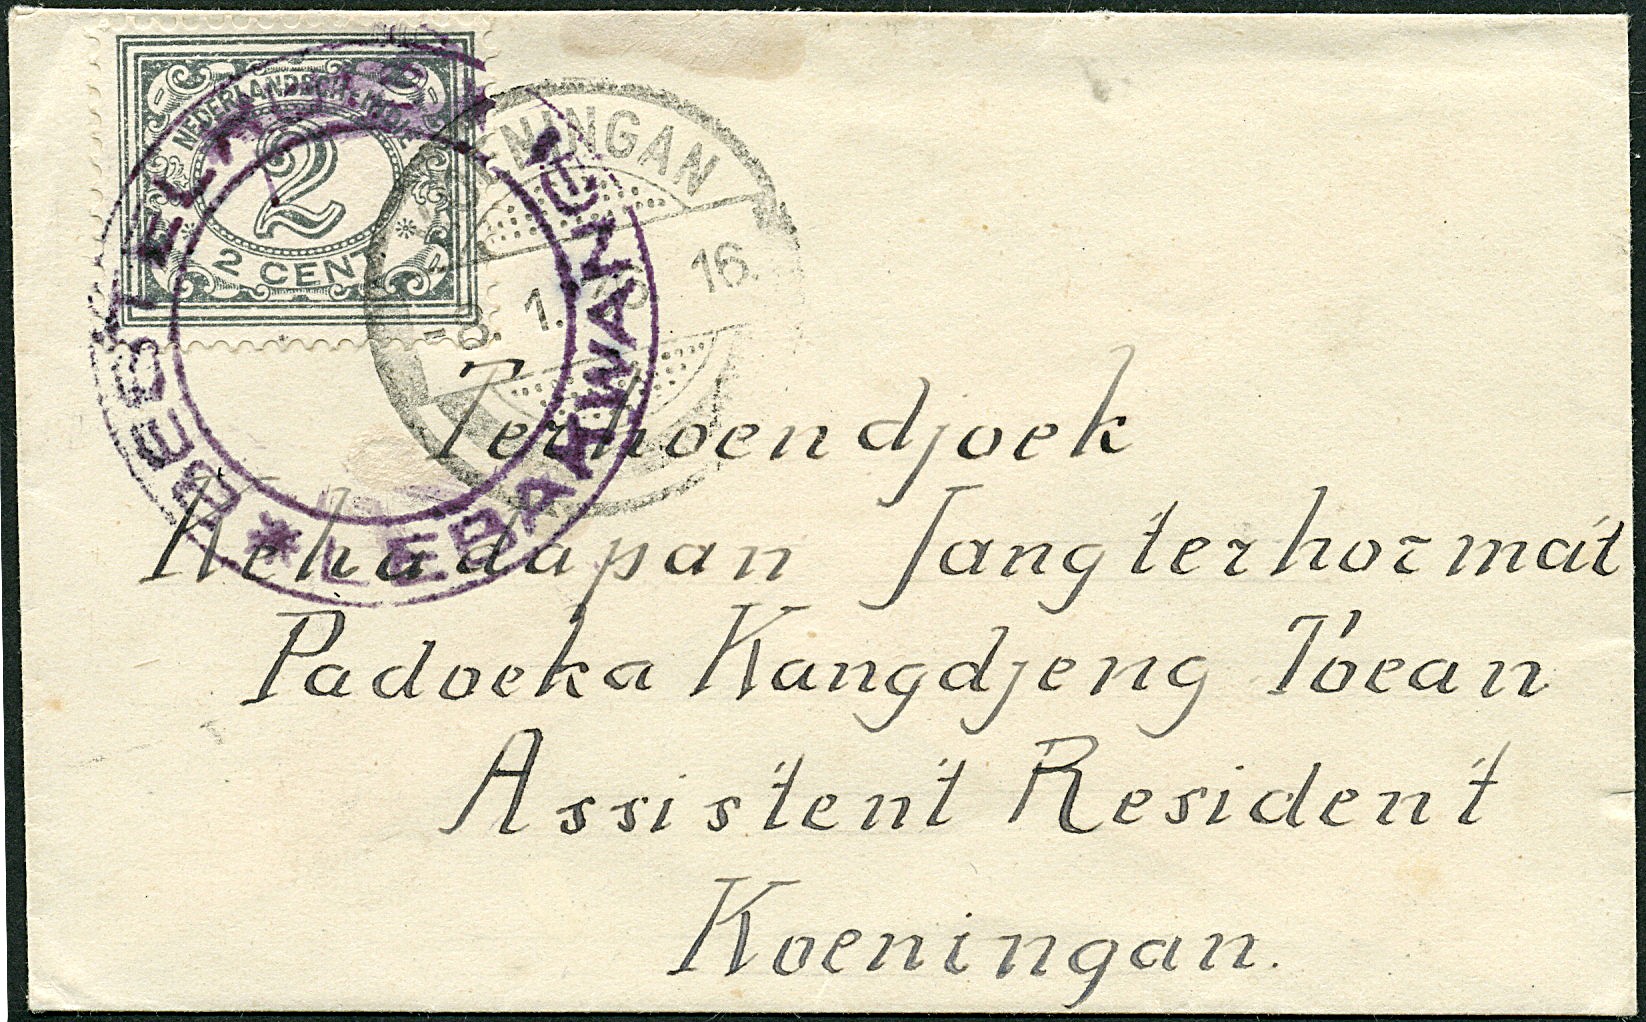 NEDERLANDSCH-INDIË
2
2 CENT
KOENINGAN
16.
LEBAKWANG
Terhoendjoek
Kehadapan Jangterhormat
Padoeka Kangdjeng Toean
Assistent Resident
Koeningan.